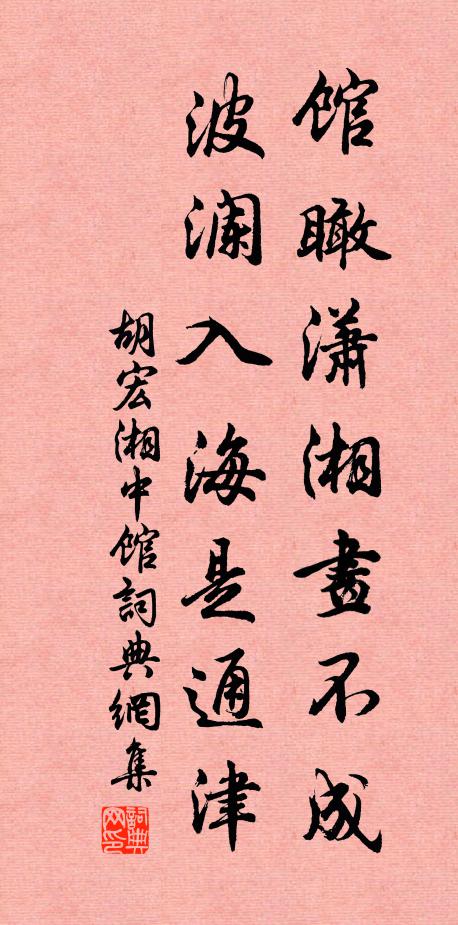 馆瞰潇湘畫不成
波澜入海是通津
胡宏湘中馆詞典網集
詞典网印